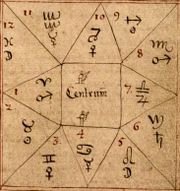 10
11
9
12
8
1
Centrum
7
2
6
3
4
5